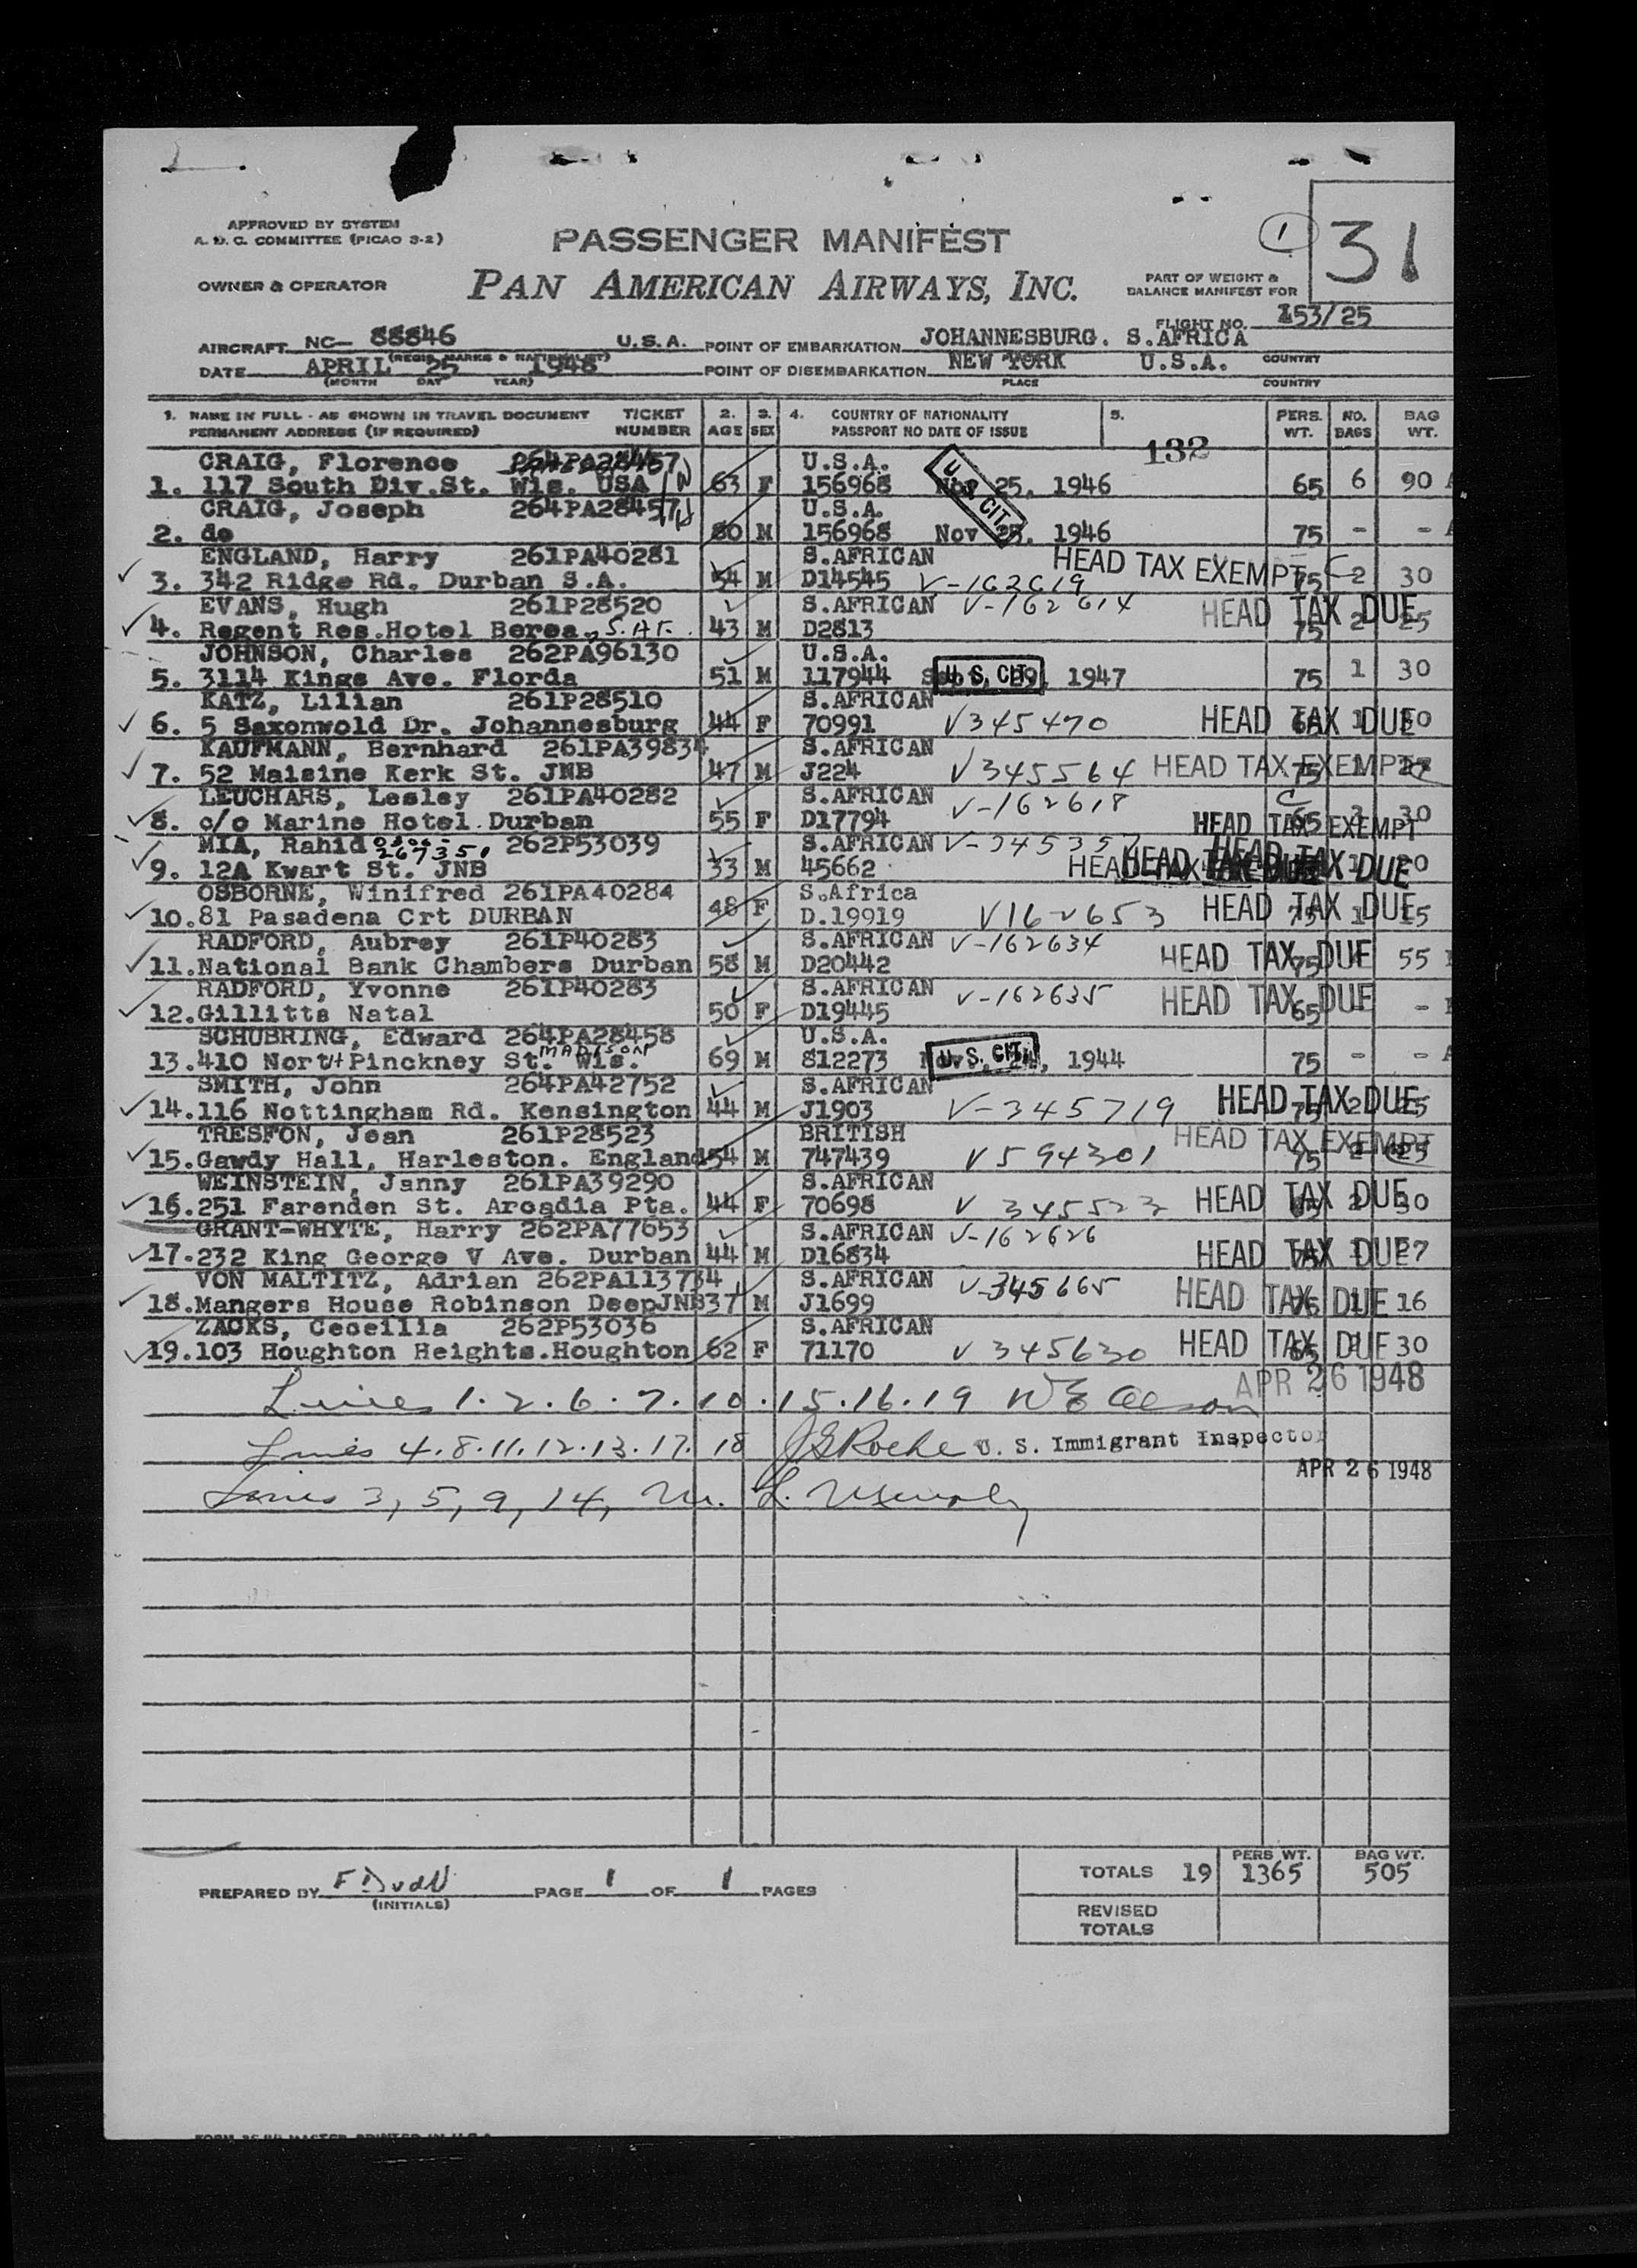 APPROVED BY SYSTEM
A. D. C. COMMITTEE (PICAO 3-2)
PASSENGER MANIFEST
1
31
OWNER & OPERATOR
PAN AMERICAN AIRWAYS, INC.
PART OF WEIGHT &
BALANCE MANIFEST FOR
FLIGHT NO. 153/25
AIRCRAFT NC— 88846 U.S.A. POINT OF EMBARKATION JOHANNESBURG. S.AFRICA
(REGIS. MARKS & NATIONALITY) COUNTRY
DATE APRIL 25 1948 POINT OF DISEMBARKATION NEW YORK U.S.A.
(MONTH DAY YEAR) PLACE COUNTRY
1. NAME IN FULL - AS SHOWN IN TRAVEL DOCUMENT TICKET 2. 3. 4. COUNTRY OF NATIONALITY 5. PERS. NO. BAG
PERMANENT ADDRESS (IF REQUIRED) NUMBER AGE SEX PASSPORT NO DATE OF ISSUE WT. BAGS WT.
132
CRAIG, Florence 264PA28457 U.S.A.
1. 117 South Div.St. Wis. USA 63 F 156968 Nov 25, 1946 65 6 90 A
U.S. CIT.
CRAIG, Joseph 264PA28457 U.S.A.
2. do 80 M 156968 Nov 25, 1946 75 - - A
ENGLAND, Harry 261PA40281 S.AFRICAN HEAD TAX EXEMPT
3. 342 Ridge Rd. Durban S.A. 54 M D14545 V-162619 75 2 30
EVANS, Hugh 261P28520 S.AFRICAN V-162614 HEAD TAX DUE
4. Regent Res.Hotel Berea, S. Af. 43 M D2813 75 2 25
JOHNSON, Charles 262PA96130 U.S.A.
5. 3114 Kings Ave. Florda 51 M 117944 U.S. CIT. 1947 75 1 30
KATZ, Lilian 261P28510 S.AFRICAN
6. 5 Saxonwold Dr. Johannesburg 44 F 70991 V345470 HEAD TAX DUE 1 30
KAUFMANN, Bernhard 261PA39834 S.AFRICAN
7. 52 Malsine Kerk St. JNB 47 M J224 V345564 HEAD TAX EXEMPT 75 1
LEUCHARS, Lesley 261PA40282 S.AFRICAN V-162618
8. c/o Marine Hotel.Durban 55 F D17794 HEAD TAX EXEMPT 65 30
MIA, Rahid 262P53039 S.AFRICAN
267351
9. 12A Kwart St. JNB 33 M 45662 HEAD TAX DUE
OSBORNE, Winifred 261PA40284 S.Africa
10.81 Pasadena Crt DURBAN 48 F D.19919 V162653 HEAD TAX DUE 75 1 15
RADFORD, Aubrey 261P40283 S.AFRICAN V-162634
11.National Bank Chambers Durban 58 M D20442 HEAD TAX DUE 75 55
RADFORD, Yvonne 261P40283 S.AFRICAN V-162635
12.Gillitts Natal 50 F D19445 HEAD TAX DUE 65 -
SCHUBRING, Edward 264PA28458 U.S.A.
MADISON
13.410 North Pinckney St. Wis. 69 M 812273 U.S. CIT. 1944 75 - - A
SMITH, John 264PA42752 S.AFRICAN
14.116 Nottingham Rd. Kensington 44 M J1903 V-345719 HEAD TAX DUE 75 2 25
TRESFON, Jean 261P28523 BRITISH HEAD TAX EXEMPT
15.Gawdy Hall, Harleston. England 54 M 747439 V594301 75 25
WEINSTEIN, Janny 261PA39290 S.AFRICAN
16.251 Farenden St. Arcadia Pta. 44 F 70698 V 345523 HEAD TAX DUE 65 2 30
GRANT-WHYTE, Harry 262PA77653 S.AFRICAN V-162626
17.232 King George V Ave. Durban 44 M D16834 HEAD TAX DUE 75 1 27
VON MALTITZ, Adrian 262PA113734 S.AFRICAN V-345665
18.Mangers House Robinson DeepJNB 37 M J1699 HEAD TAX DUE 75 1 16
ZACKS, Ceceilia 262P53036 S.AFRICAN
19.103 Houghton Heights.Houghton 62 F 71170 V 345630 HEAD TAX DUE 65 30
APR 26 1948
Lines 1.2.6.7.10.15.16.19
Lines 4.8.11.12.13.17.18 JG Roche U. S. Immigrant Inspector
APR 26 1948
Lines 3, 5, 9, 14,
PREPARED BY PAGE 1 OF 1 PAGES
(INITIALS)
PERS WT. BAG WT.
TOTALS 19 1365 505
REVISED
TOTALS